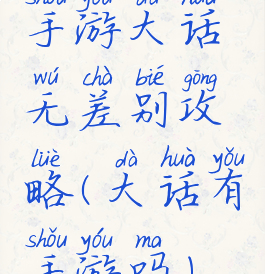 shǒu yóu dà huà
手游大话
wú chà bié gōng
无差别攻
lüè dà huà yǒu
略(大话有
shǒu yóu ma
手游吗)